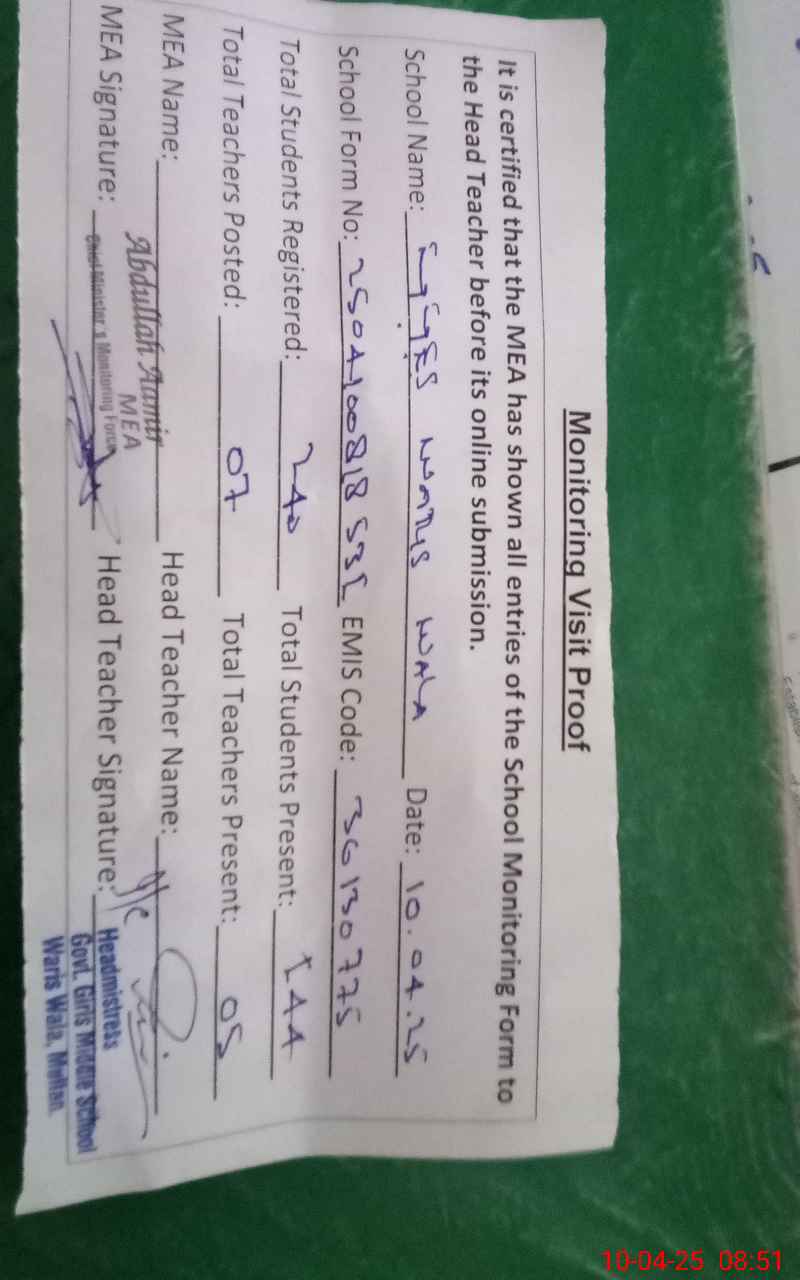 Monitoring Visit Proof
It is certified that the MEA has shown all entries of the School Monitoring Form to
the Head Teacher before its online submission.
School Name: WARIS WALA Date: 10.04.25
School Form No: EMIS Code: 36130775
Total Students Registered: 240 Total Students Present: 144
Total Teachers Posted: 07 Total Teachers Present: 05
MEA Name: Abdullah Aamir Head Teacher Name:
MEA
Chief Minister's Monitoring Force
MEA Signature: Head Teacher Signature:
Headmistress
Govt. Girls Middle School
Waris Wala, Multan.
10-04-25 08:51